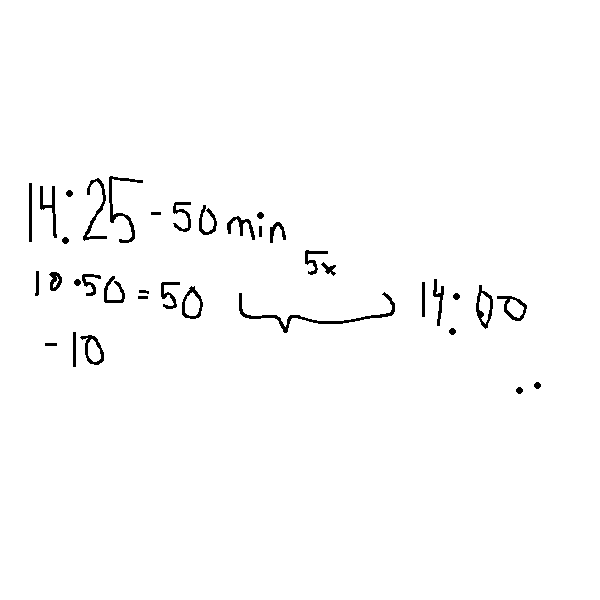 14:25 - 50 min
5x
10 · 50 = 50
14:00
- 10